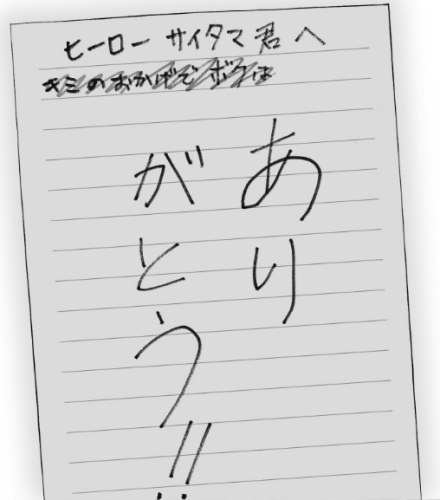 ヒーロー サイタマ君へ
キミのおかげでボクは
あり
がとう!!